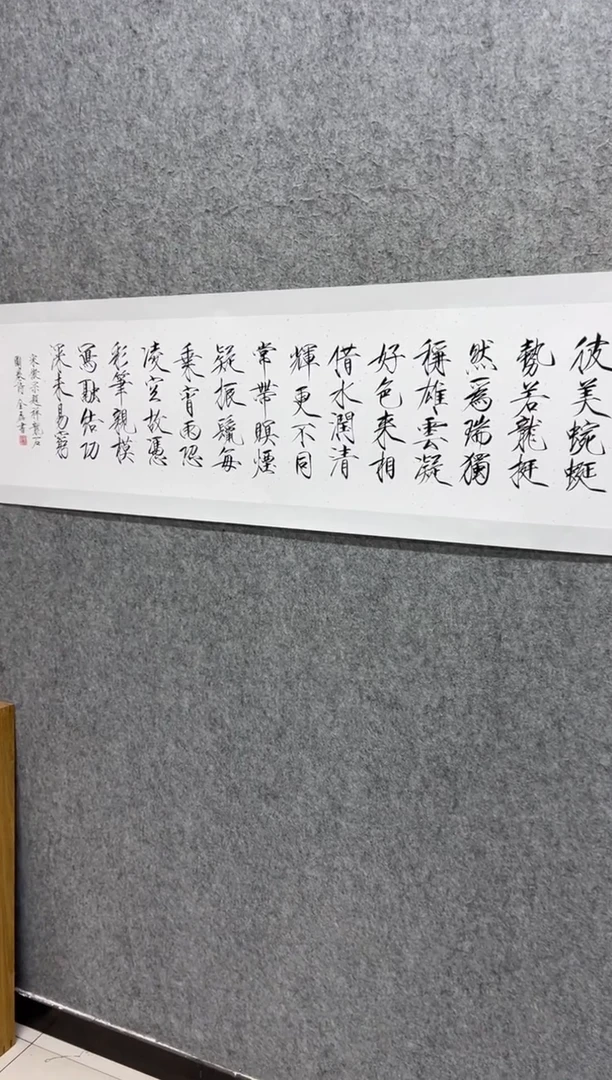 彼美蜿蜒
勢若龍挺
然爲瑞獨
稱雄雲凝
好色來相
借水潤清
輝更不同
常帶瞑煙
疑振鬣每
乘宵雨恐
凌空故憑
彩筆親模
寫融結功
深未易窮
宋徽宗題祥龍石
圖卷詩 書